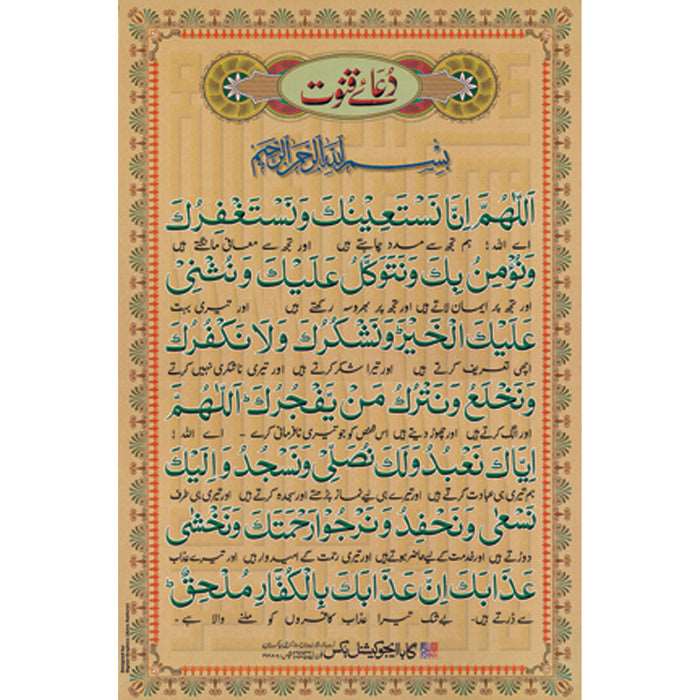 دُعَائے قنوت
بِسْمِ اللهِ الرَّحْمٰنِ الرَّحِيْمِ
اَللّٰهُمَّ اِنَّا نَسْتَعِيْنُكَ وَنَسْتَغْفِرُكَ
اے اللہ ! ہم تجھ سے مدد چاہتے ہیں اور تجھ سے معافی مانگتے ہیں
وَنُؤْمِنُ بِكَ وَنَتَوَكَّلُ عَلَيْكَ وَنُثْنِیْ
اور تجھ پر ایمان لاتے ہیں اور تجھ پر بھروسہ رکھتے ہیں اور تیری بہت
عَلَيْكَ الْخَيْرَ وَنَشْكُرُكَ وَلَا نَكْفُرُكَ
اچھی تعریف کرتے ہیں اور تیرا شکر کرتے ہیں اور تیری ناشکری نہیں کرتے
وَنَخْلَعُ وَنَتْرُكُ مَنْ يَّفْجُرُكَ ؕ اَللّٰهُمَّ
اور الگ کرتے ہیں اور چھوڑ دیتے ہیں اس شخص کو جو تیری نافرمانی کرے ۔ اے اللہ !
اِيَّاكَ نَعْبُدُ وَلَكَ نُصَلِّیْ وَنَسْجُدُ وَاِلَيْكَ
ہم تیری ہی عبادت کرتے ہیں اور تیرے ہی لیے نماز پڑھتے اور سجدہ کرتے ہیں اور تیری ہی طرف
نَسْعٰی وَنَحْفِدُ وَنَرْجُوْا رَحْمَتَكَ وَنَخْشٰی
دوڑتے ہیں اور خدمت کے لیے حاضر ہوتے ہیں اور تیری رحمت کے امیدوار ہیں اور تیرے عذاب
عَذَابَكَ اِنَّ عَذَابَكَ بِالْكُفَّارِ مُلْحِقٌ ؕ
سے ڈرتے ہیں۔ بے شک تیرا عذاب کافروں کو ملنے والا ہے ۔
گابا ایجوکیشنل بکس